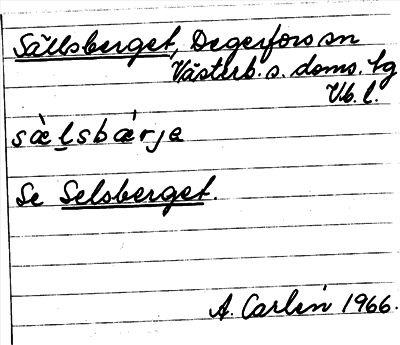 Sällsberget, Degerfors sn
Västerb. s. doms. tg
Vb. l.
sæ̀lsbæ̀rja
Se Selsberget.
A. Carlin 1966.